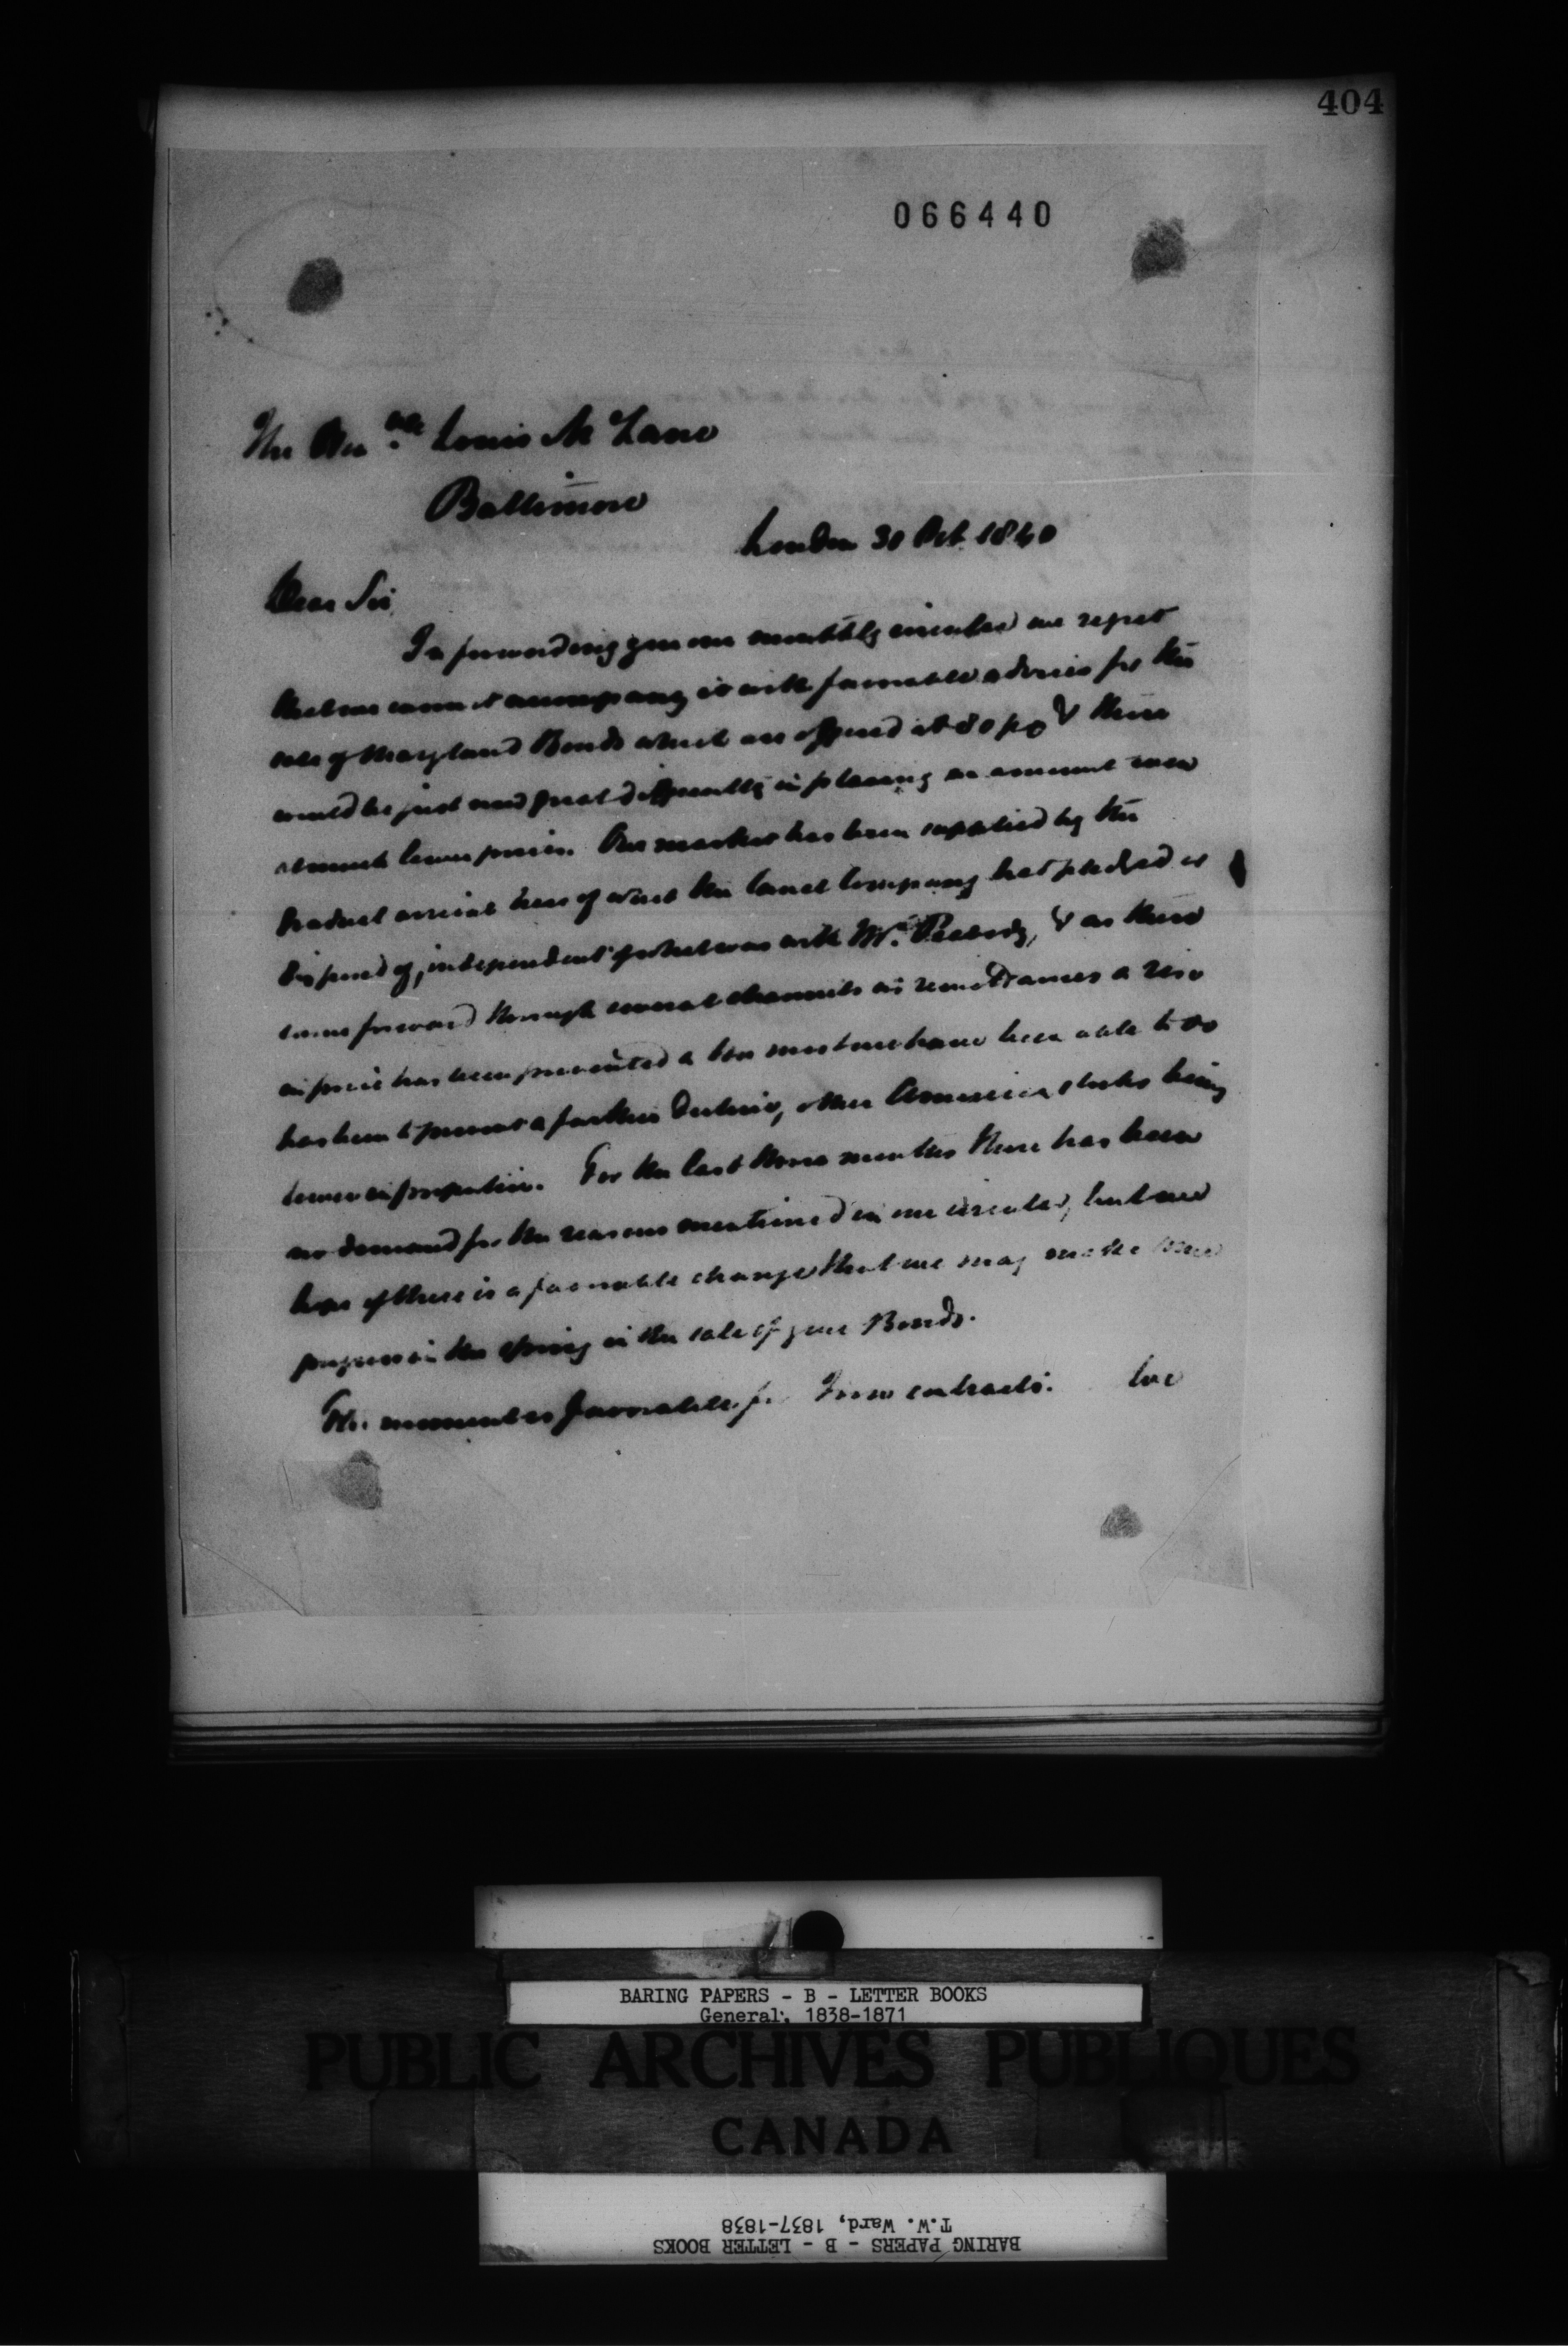 404
066440
The Hon.ble Louis McLane
Baltimore
London 30 Oct. 1840
Dear Sir,
In forwarding you our monthly circular we regret
that we cannot accompany it with favorable advices for the
sale of Maryland Bonds which are offered at 80 p% & there
would be just now great difficulty in placing an amount even
at much lower prices. Our market has been supplied by the
gradual arrival here of what the Canal Company had pledged or
disposed of, independent of what was with Mr. Peabody, & as these
come forward through several channels as remittances a rise
in price has been prevented & the most we have been able to do
has been to prevent a further decline, other American stocks being
lower in proportion. For the last three months there has been
no demand for the reasons mentioned in our circular, but we
hope if there is a favorable change that we may make some
progress in the spring in the sale of your Bonds.
The moment is favorable for Iron contracts. We
BARING PAPERS - B - LETTER BOOKS
General, 1838-1871
PUBLIC ARCHIVES PUBLIQUES
CANADA
T.W. Ward, 1837-1838
BARING PAPERS - B - LETTER BOOKS